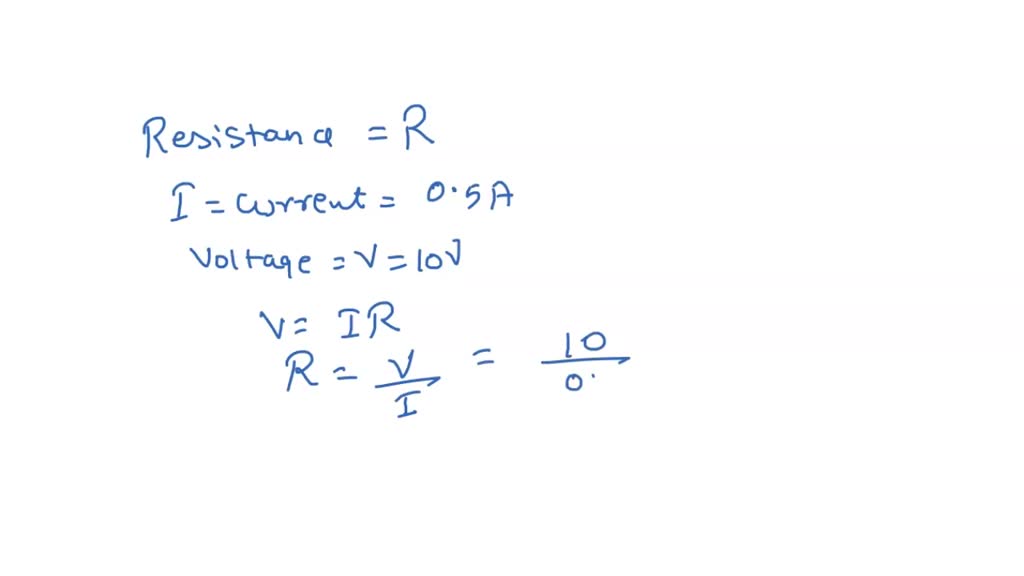 Resistance = R
I = current = 0.5A
Voltage = V = 10V
V = IR
R = V/I = 10/0.